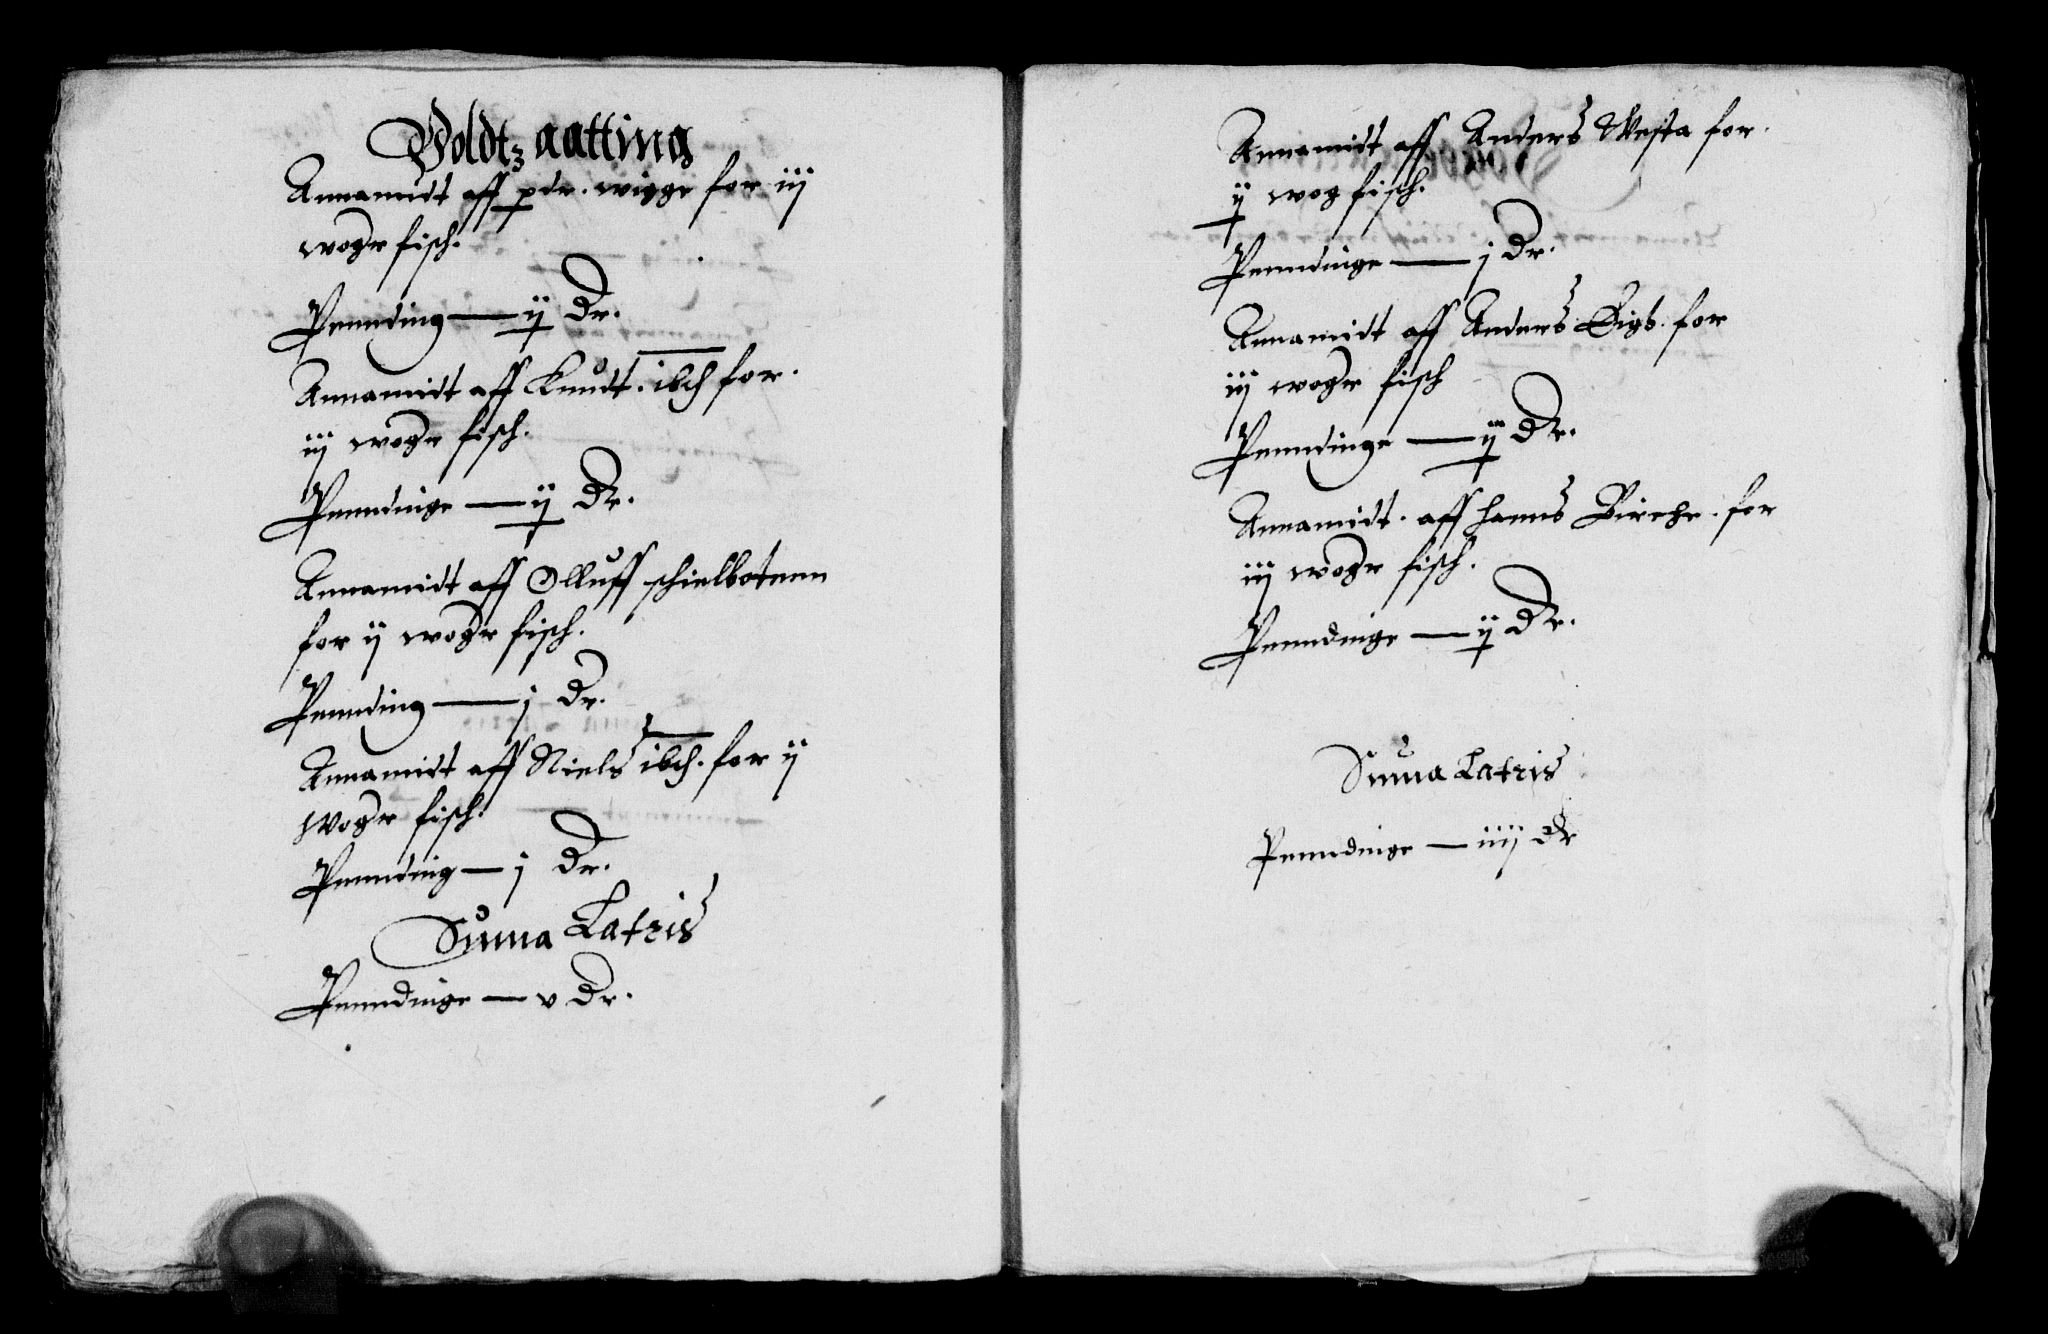 Woldtz aatting
Annamidt aff pdr. wigge for iij
woger fisch.
Pennding — ij Dr.
Annamidt aff Knudt. ibd for.
iij woger fisch.
Penndinge — ij Dr.
Annamidt aff Olluff schielbotenn
for ij woger fisch.
Pennding — j Dr.
Annamidt aff Niels ibd. for ij
Woger fisch.
Pennding — j Dr.
Suma Latris
Penndinge — v Dr.
Annamidt aff Anders Westa for.
ij wog fisch.
Penndinge — j Dr.
Annamidt aff Anders for
iij woger fisch
Penndinge — ij Dr.
Annamidt. aff hanns for
iij woger fisch.
Penndinge — ij Dr.
Suma Latris
Penndinge — iiij dr